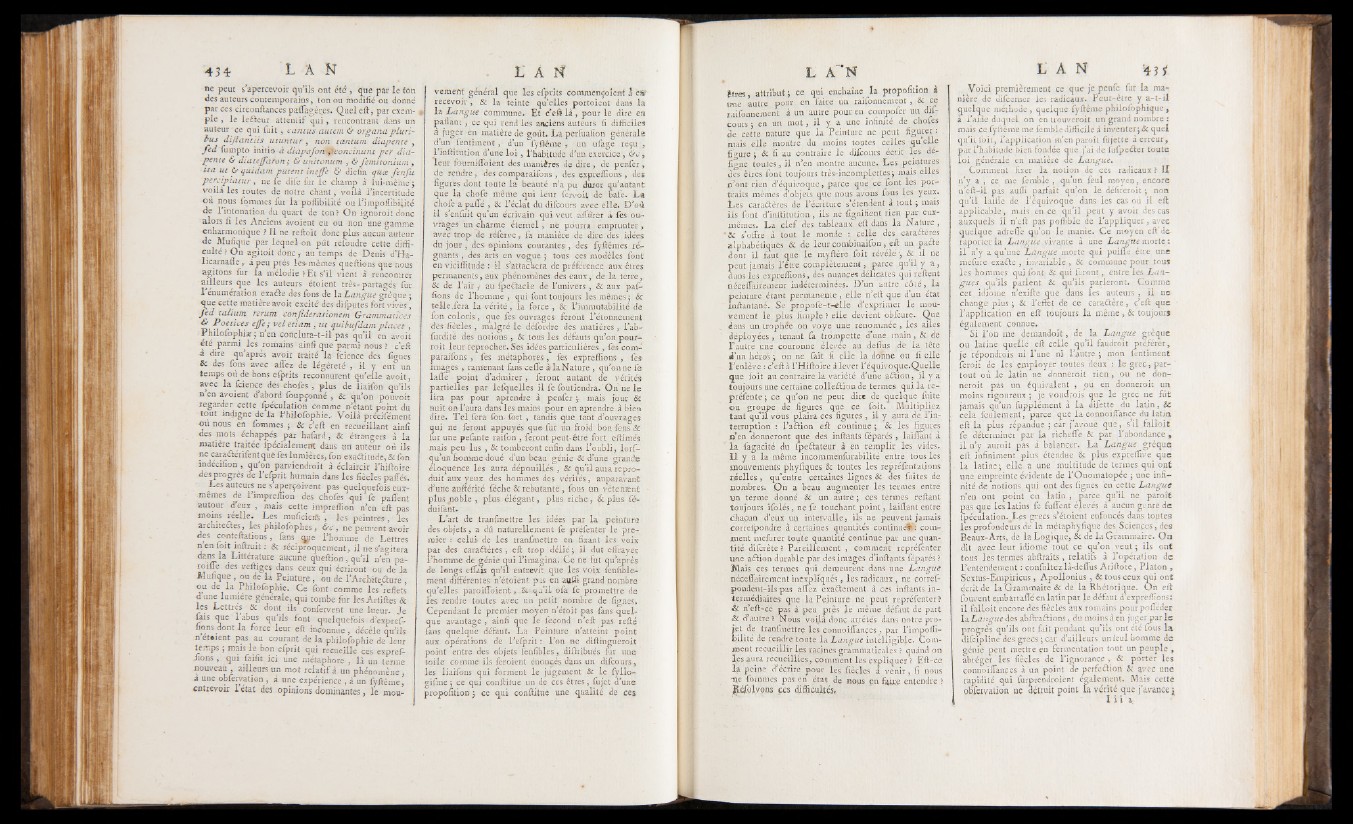 434 L A N
ne peut s'apercevoir qu'ils ont été, que par le son
des auteurs contemporains, ton ou modifié ou donné
par ces circonstances passagères. Quel est, par exem-
ple, le lecteur attentif qui, rencontrant dans un
auteur ce qui suit, cantus autem & organa pluri-
bus distantiis utuntur, non tantum diapente,
sed sumpto initio à diapason concinunt per dia-
pente & diatessaron; & unitonum, & semitonium,
ita ut & quidam putent inesse & diesin quæ sensu
percipiatur, ne se dise sur le champ à lui-même;
voilà les routes de notre chant, voilà l'incertitude
où nous sommes sur la possibilité ou l'impossibilité
de l'intonation du quart de ton? On ignoroit donc
alors si les Anciens avoient eu ou non une gamme
enharmonique? Il ne restoit donc plus aucun auteur
de Musique par lequel on pût résoudre cette diffi-
culté? On agitoit donc, au temps de Denis d'Ha-
licarnasse, à peu près les mêmes questions que nous
agitons sur la mélodie? Et s'il vient à rencontrer
ailleurs que les auteurs étoient très-partagés sur
l'énumération exacte des sons de la Langue grèque;
que cette matière avoit excité des disputes fort vives,
sed talium rerum considerationem Grammatices
& Poetices esse; vel etiam, ut quibusdam placet,
Philosophiæ; n'en conclura-t-il pas qu'il en avoit
été parmi les romains ainsi que parmi nous? c'est
à dire qu'après avoir traité la science des signes
& des sons avec assez de légèreté, il y eut un
temps où de bons esprits reconnurent qu'elle avoit,
avec la science des choses, plus de liaison qu'ils
n'en avoient d'abord soupçonné, & qu'on pouvoit
regarder cette spéculation comme n'étant point du
tout indigne de la Philosophie. Voilà précisément
où nous en sommes; & c'est en recueillant ainsi
des mots échappés par hasard, & étrangers à la
matière traitée spécialement dans un auteur où ils
ne caractérisent que ses lumières, son exactitude, & son
indécision, qu'on parviendroit à éclaircir l'histoire
des progrès de l'esprit humain dans les siècles passés.
Les auteurs ne s'aperçoivent pas quelquefois eux-
mêmes de l'impression des choses qui se passent
autour d'eux, mais cette impression n'en est pas
moins réelle. Les musiciens, les peintres, les
architectes, les philosophes, &c, ne peuvent avoir
des contestations, sans que l'homme de Lettres
n'en soit instruit: & réciproquement, il ne s'agitera
dans la Littérature aucune question, qu'il n'en pa-
roisse des vestiges dans ceux qui écriront ou de la
Musique, ou de la Peinture, ou de l'Architecture,
ou de la Philosophie. Ce sont comme les reflets
d'une lumière générale, qui tombe sur les Artistes &
les Lettrés & dont ils conservent une lueur. Je
sais que l'abus qu'ils font quelquefois d'expres-
sions dont la force leur est inconnue, décèle qu'ils
n'étoient pas au courant de la philosophie de leur
temps; mais le bon esprit qui recueille ces expres-
sions, qui saisit ici une métaphore, là un terme
nouveau, ailleurs un mot relatif à un phénomène,
à une observation, à une expérience, à un système,
entrevoit l'état des opinions dominantes, le mou-
L A N
vement général que les esprits commençoient à en
recevoir, & la teinte qu'elles portoient dans la
la Langue commune. Et c'est là, pour le dire en
passant, ce qui rend les anciens auteurs si difficiles
à juger en matière de goût. La persuasion générale
d'un sentiment, d'un système, un usage reçu,
l'institution d'une loi, l'habitude d'un exercice, &c,
leur fournissoient des manières de dire, de penser,
de rendre, des comparaisons, des expressions, des
figures dont toute la beauté n'a pu durer qu'autant
que la chose même qui leur servoit de base. La
chose a passé, & l'éclat du discours avec elle. D'où
il s'ensuit qu'un écrivain qui veut assûrer à ses ou-
vrages un charme éternel, ne pourra emprunter,
avec trop de réserve, sa manière de dire des idées
du jour, des opinions courantes, des systèmes ré-
gnants, des arts en vogue; tous ces modèles sont
en vicissitude: il s'attachera de préférence aux êtres
permanents, aux phénomènes des eaux, de la terre,
& de l'air, au spectacle de l'univers, & aux pas-
sions de l'homme, qui sont toujours les mêmes; &
telle sera la vérité, la force, & l'immutabilité de
son coloris, que ses ouvrages feront l'étonnement
des siècles, malgré le désordre des matières, l'ab-
surdité des notions, & tous les défauts qu'on pour-
roit leur reprocher. Ses idées particulières, ses com-
paraisons, ses métaphores, ses expressions, ses
images, ramenant sans cesse à la Nature, qu'on ne se
lasse point d'admirer, seront autant de vérités
partielles par lesquelles il se soutiendra. On ne le
lira pas pour aprendre à penser; mais jour &
nuit on l'aura dans les mains pour en aprendre à bien
dire. Tel sera son sort, tandis que tant d'ouvrages
qui ne seront appuyés que sur un froid bon sens &
sur une pesante raison, seront peut-être fort estimés
mais peu lus, & tomberont enfin dans l'oubli, lors-
qu'un homme doué d'un beau génie & d'une grande
éloquence les aura dépouillés, & qu'il aura repro-
duit aux yeux des hommes des vérités, auparavant
d'une austérité sèche & rebutante, sous un vêtement
plus noble, plus élégant, plus riche, & plus sé-
duisant.
L'art de transmettre les idées par la peinture
des objets, a dû naturellement se présenter le pre-
mier: celui de les transmettre en fixant les voix
par des caractères, est trop délié; il dut effrayer
l'homme de génie qui l'imagina. Ce ne fut qu'après
de longs essais qu'il entrevit que les voix sensible-
ment différentes n'étoient pas en aussi grand nombre
qu'elles paroissoient, & qu'il osa se promettre de
les rendre toutes avec un petit nombre de signes.
Cependant le premier moyen n'étoit pas sans quel-
que avantage, ainsi que le second n'est pas resté
sans quelque défaut. La Peinture n'atteint point
aux opérations de l'esprit: l'on ne distingueroit
point entre des objets sensibles, distribués sur une
toile comme ils seroient énoncés dans un discours,
les liaisons qui forment le jugement & le syllo-
gisme; ce qui constitue un de ces êtres, sujet d'une
proposition; ce qui constitue une qualité de ces
L A N
êtres, attribut; ce qui enchaîne la proposition à
une autre pour en faire un raisonnement, & ce
raisonnement à un autre pour en composer un dis-
cours; en un mot, il y a une infinité de choses
de cette nature que la Peinture ne peut figurer:
mais elle montre du moins toutes celles qu'elle
figure; & si au contraire le discours écrit les dé-
signe toutes, il n'en montre aucune. Les peintures
des êtres sont toujours très-incomplettes; mais elles
n'ont rien d'équivoque, parce que ce sont les por-
traits mêmes d'objets que nous avons sous les yeux.
Les caractères de l'écriture s'étendent à tout; mais
ils sont d'institution, ils ne signifient rien par eux-
mêmes. La clef des tableaux est dans la Nature,
& s'offre à tout le monde: celle des caractères
alphabétiques & de leur combinaison, est un pacte
dont il faut que le mystère soit révélé, & il ne
peut jamais l'être complètement, parce qu'il y a,
dans les expressions, des nuances délicates qui restent
nécessairement indéterminées. D'un autre côté, la
peinture étant permanente, elle n'est que d'un état
instantané. Se propose-t-elle d'exprimer le mou-
vement le plus simple? elle devient obscure. Que
dans un trophée on voye une renommée, les ailes
déployées, tenant sa trompette d'une main, & de
l'autre une couronne élevée au dessus de la tête
d'un héros; on ne sait si elle la donne ou si elle
l'enlève: c'est à l'Histoire à lever l'équivoque. Quelle
que soit au contraire la variété d'une action, il y a
toujours une certaine collection de termes qui la re-
présente; ce qu'on ne peut dire de quelque suite
ou groupe de figures que ce soit. Multipliez
tant qu'il vous plaira ces figures, il y aura de l'in-
terruption: l'action est continue; & les figures
n'en donneront que des instants séparés, laissant à
la sagacité du spectateur à en remplir les vides.
Il y a la même incommensurabilité entre tous les
mouvements physiques & toutes les représentations
réelles, qu'entre certaines lignes & des suites de
nombres. On a beau augmenter les termes entre
un terme donné & un autre; ces termes restant
toujours isolés, ne se touchant point, laissant entre
chacun d'eux un intervalle, ils ne peuvent jamais
correspondre à certaines quantités continues: com-
ment mesurer toute quantité continue par une quan-
tité discrète? Pareillement, comment représenter
une action durable par des images d'instants séparés?
Mais ces termes qui demeurent dans une Langue
nécessairement inexpliqués, les radicaux, ne corres-
pondent-ils pas assez exactement à ces instants in-
termédiaires que la Peinture ne peut représenter?
& n'est-ce pas à peu près le même défaut de part
& d'autre? Nous voilà donc arrêtés dans notre pro-
jet de transmettre les connoissances, par l'impossi-
bilité de rendre toute la Langue intelligible. Com-
ment recueillir les racines grammaticales? quand on
les aura recueillies, comment les expliquer? Est-ce
la peine d'écrire pour les siècles à venir, si nous
ne sommes pas en état de nous en faire entendre?
Résolvons ces difficultés.
L A N 435
Voici premièrement ce que je pense sur la ma-
nière de discerner les radicaux. Peut-être y a-t-il
quelque méthode, quelque système philosophique,
à l'aide duquel on en trouveroit un grand nombre:
mais ce système me semble difficile à inventer; & quel
qu'il soit, l'application m'en paroît sujette à erreur,
par l'habitude bien fondée que j'ai de suspecter toute
loi générale en matière de Langue.
Comment fixer la notion de ces radicaux? Il
n'y a, ce me semble, qu'un seul moyen, encore
n'est-il pas aussi parfait qu'on le désireroit; non
qu'il laisse de l'équivoque dans les cas où il est
applicable, mais en ce qu'il peut y avoir des cas
auxquels il n'est pas possible de l'appliquer, avec
quelque adresse qu'on le manie. Ce moyen est de
raporter la Langue vivante à une Langue morte:
il n'y a qu'une Langue morte qui puisse être une
mesure exacte, invariable, & commune pour tous
les hommes qui sont & qui seront, entre les Lan-
gues qu'ils parlent & qu'ils parleront. Comme
cet idiome n'existe que dans les auteurs, il ne
change plus; & l'effet de ce caractère, c'est que
l'application en est toujours la même, & toujours
également connue.
Si l'on me demandoit, de la Langue grèque
ou latine quelle est celle qu'il faudroit préférer,
je répondrois ni l'une ni l'autre; mon sentiment
seroit de les employer toutes deux: le grec, par-
tout où le latin ne donneroit rien, ou ne don-
neroit pas un équivalent, ou en donneroit un
moins rigoureux; je voudrois que le grec ne fût
jamais qu'un supplément à la disette du latin, &
cela seulement, parce que la connoissance du latin
est la plus répandue; car j'avoue que, s'il falloit
se déterminer par la richesse & par l'abondance,
il n'y auroit pas à balancer. La Langue grèque
est infiniment plus étendue & plus expressive que
la latine; elle a une multitude de termes qui ont
une empreinte évidente de l'Onomatopée; une infi-
nité de notions qui ont des signes en cette Langue
n'en ont point en latin, parce qu'il ne paroît
pas que les latins se fussent élevés à aucun genre de
spéculation. Les grecs s'étoient enfoncés dans toutes
les profondeurs de la métaphysique des Sciences, des
Beaux-Arts, de la Logique, & de la Grammaire. On
dit avec leur idiome tout ce qu'on veut; ils ont
tous les termes abstraits, relatifs à l'opération de
l'entendement: consultez là-dessus Aristote, Platon,
Sextus-Empiricus, Apollonius, & tous ceux qui ont
écrit de la Grammaire & de la Rhétorique. On est
souvent embarrassé en latin par le défaut d'expressions:
il falloit encore des siècles aux romains pour posséder
la Langue des abstractions, du moins à en juger par le
progrès qu'ils ont fait pendant qu'ils ont été sous la
discipline des grecs; car d'ailleurs un seul homme de
génie peut mettre en fermentation tout un peuple,
abréger les siècles de l'ignorance, & porter les
connoissances à un point de perfection & avec une
rapidité qui surprendroient également. Mais cette
observation ne détruit point la vérité que j'avance;
I i i 2